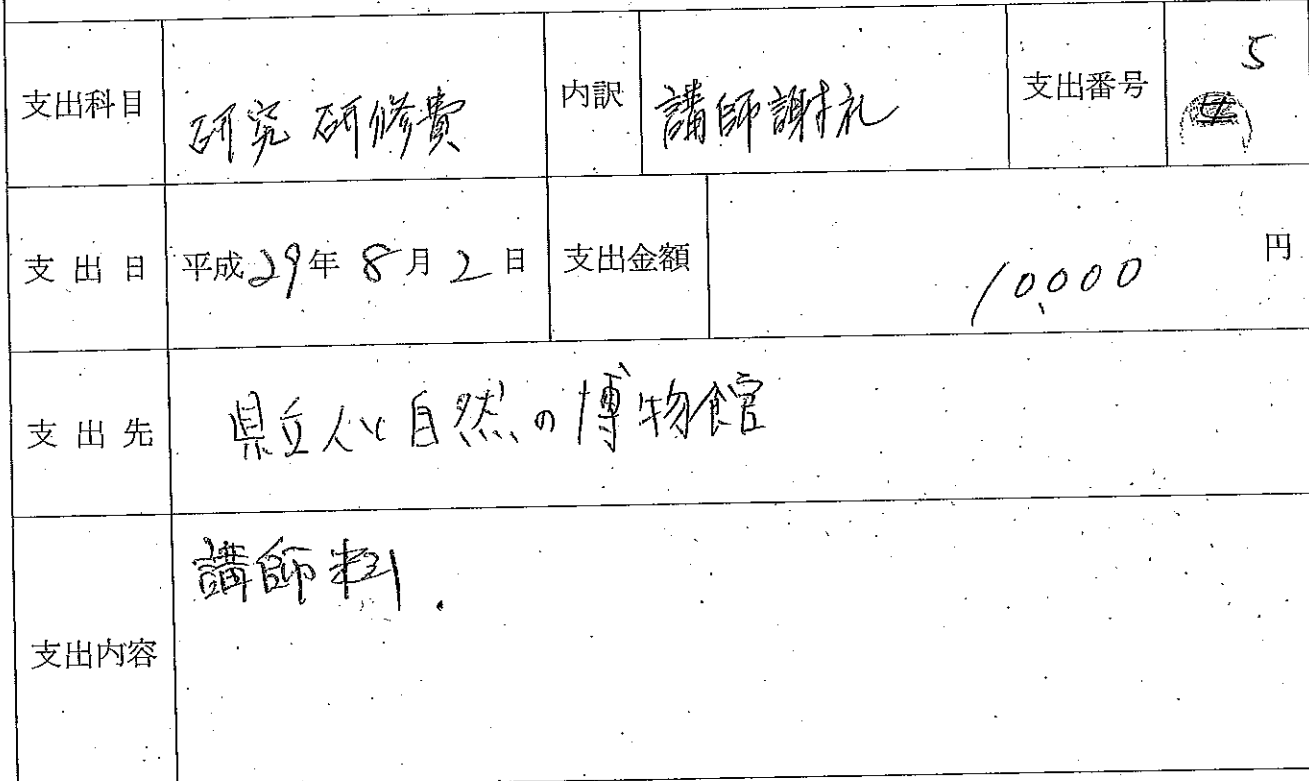 支出科目 研究研修費 内訳 講師謝礼 支出番号 5
支出日 平成29年8月2日 支出金額 10,000 円
支出先 県立人と自然の博物館
支出内容 講師料.